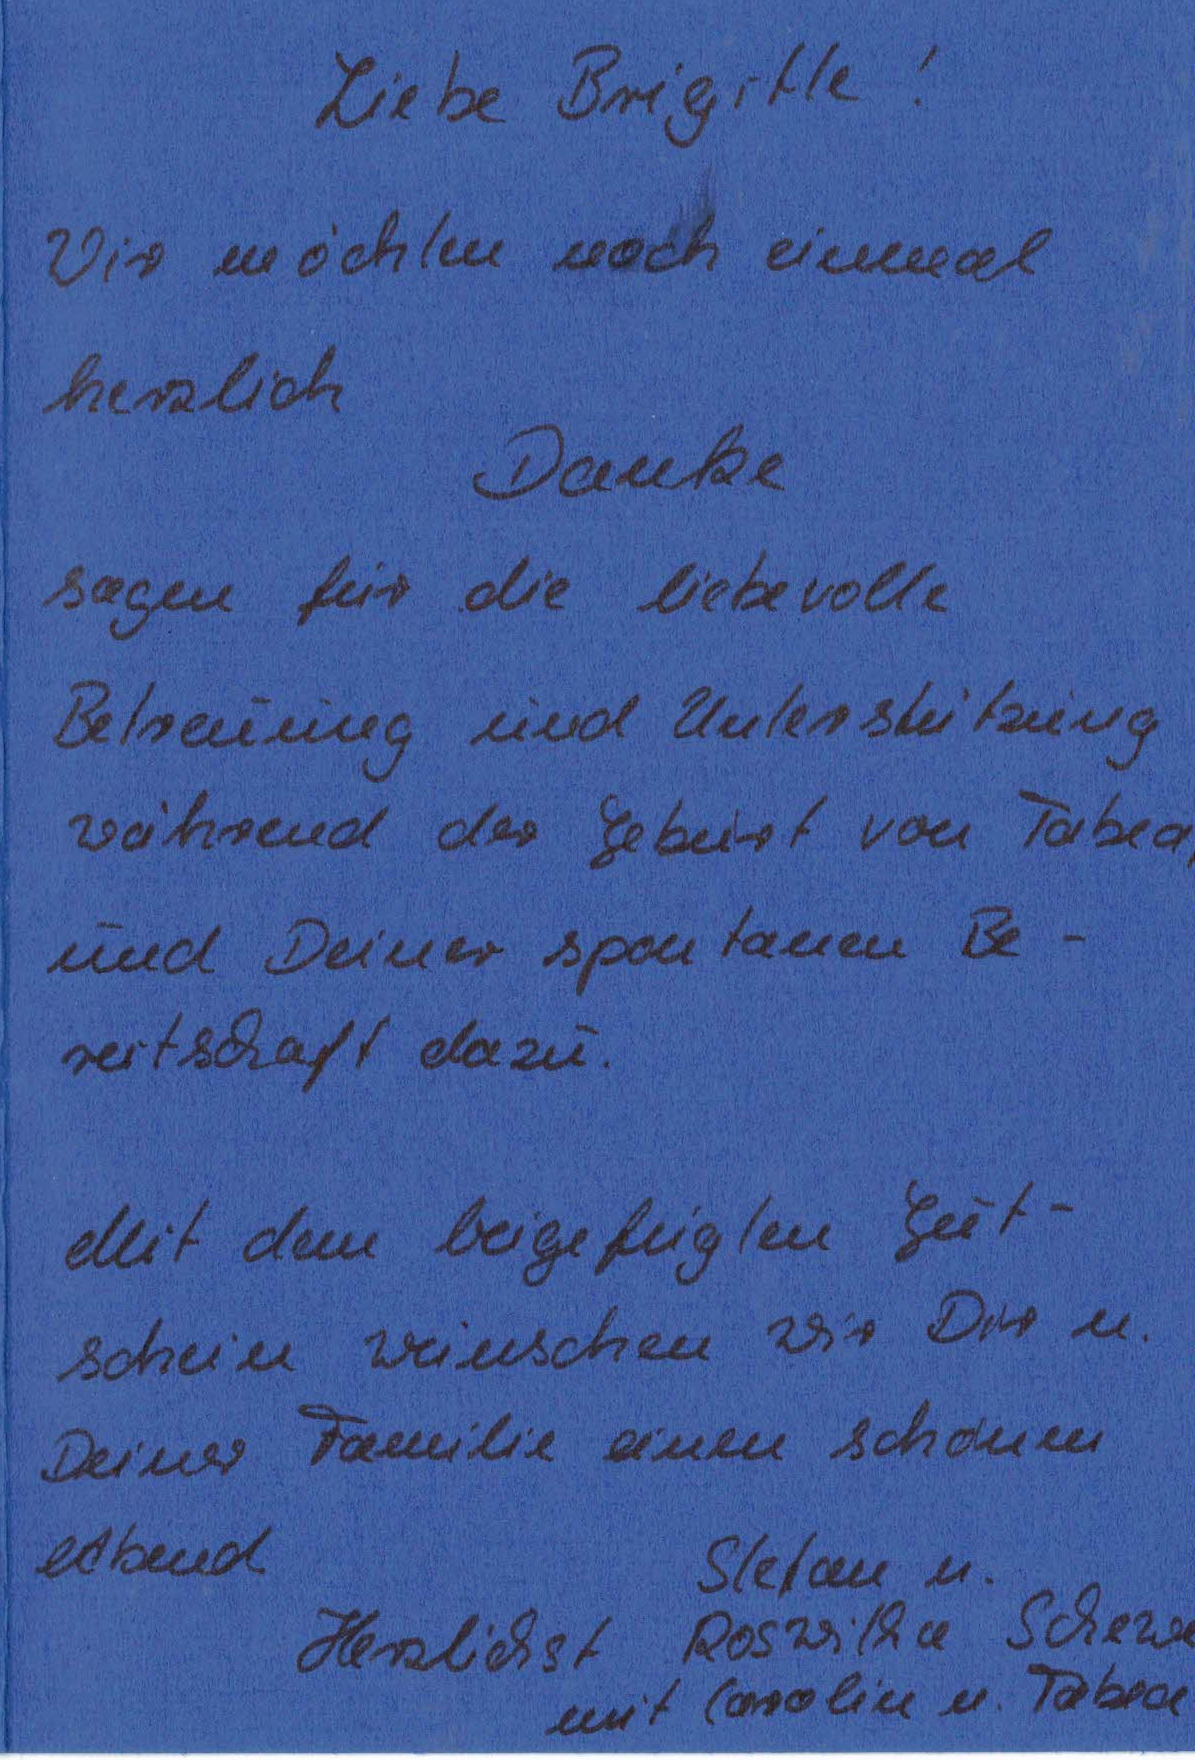 Liebe Brigitte!
Wir möchten noch einmal
herzlich
Danke
sagen für die liebevolle
Betreuung und Unterstützung
während der Geburt von Tabea,
und Deiner spontanen Be-
reitschaft dazu.
Mit dem beigefügten Gut-
schein wünschen wir Dir u.
Deiner Familie einen schönen
Abend
Stefan u.
Herzlichst Roswitha
mit Carolin u. Tabea